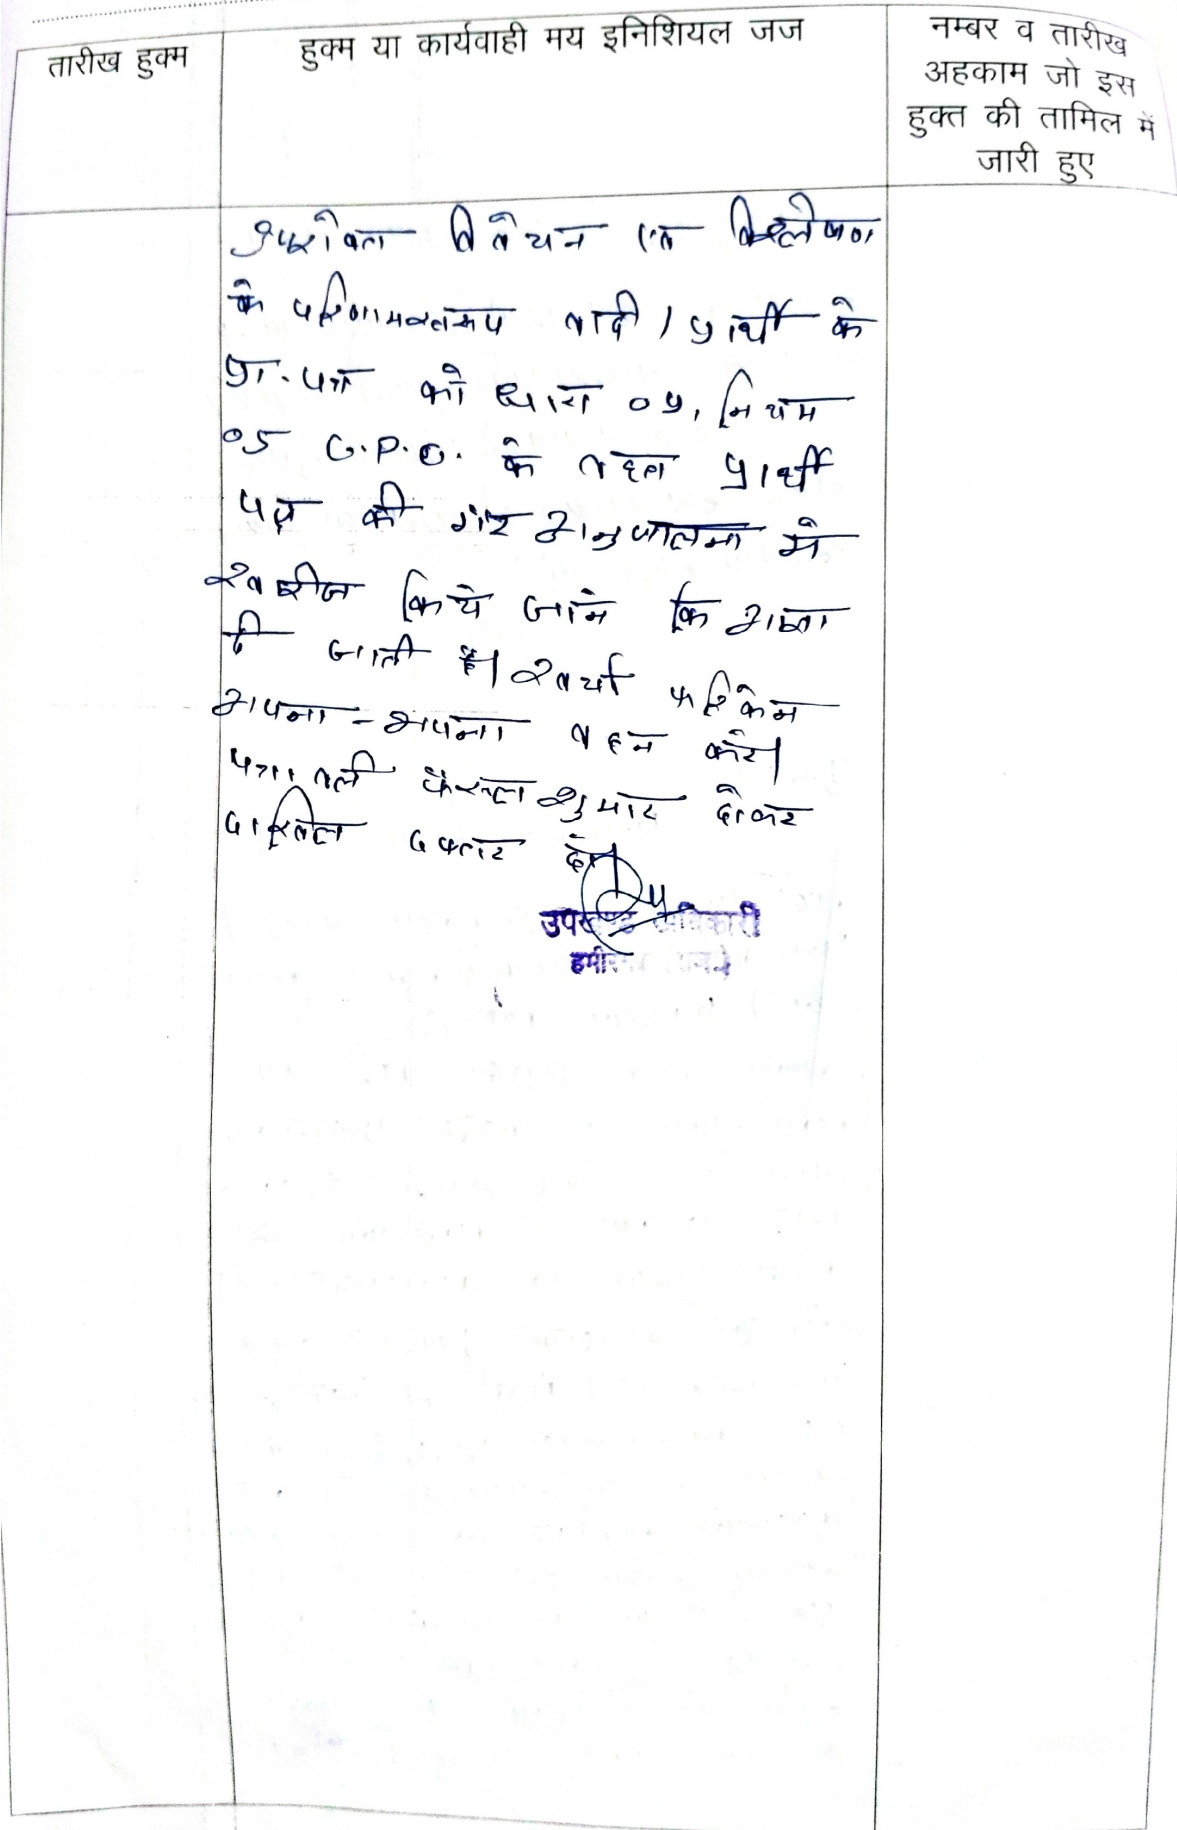 तारीख हुक्म
हुक्म या कार्यवाही मय इनिशियल जज
नम्बर व तारीख
अहकाम जो इस
हुक्त की तामिल में
जारी हुए
उपरोक्त विवेचन एवं विश्लेषण
के परिणामस्वरूप वादी / प्रार्थी के
प्रा. पत्र को धारा 05, नियम
05 C.P.C. के तहत प्रार्थी
पत्र की गैर अनुपालना में
खारीज किये जाने कि आज्ञा
दी जाती है। खर्चा फरिकेन
अपना-अपना वहन करे।
पत्रावली फैसल शुमार होकर
दाखिल दफ्तर हो।
उपखण्ड अधिकारी